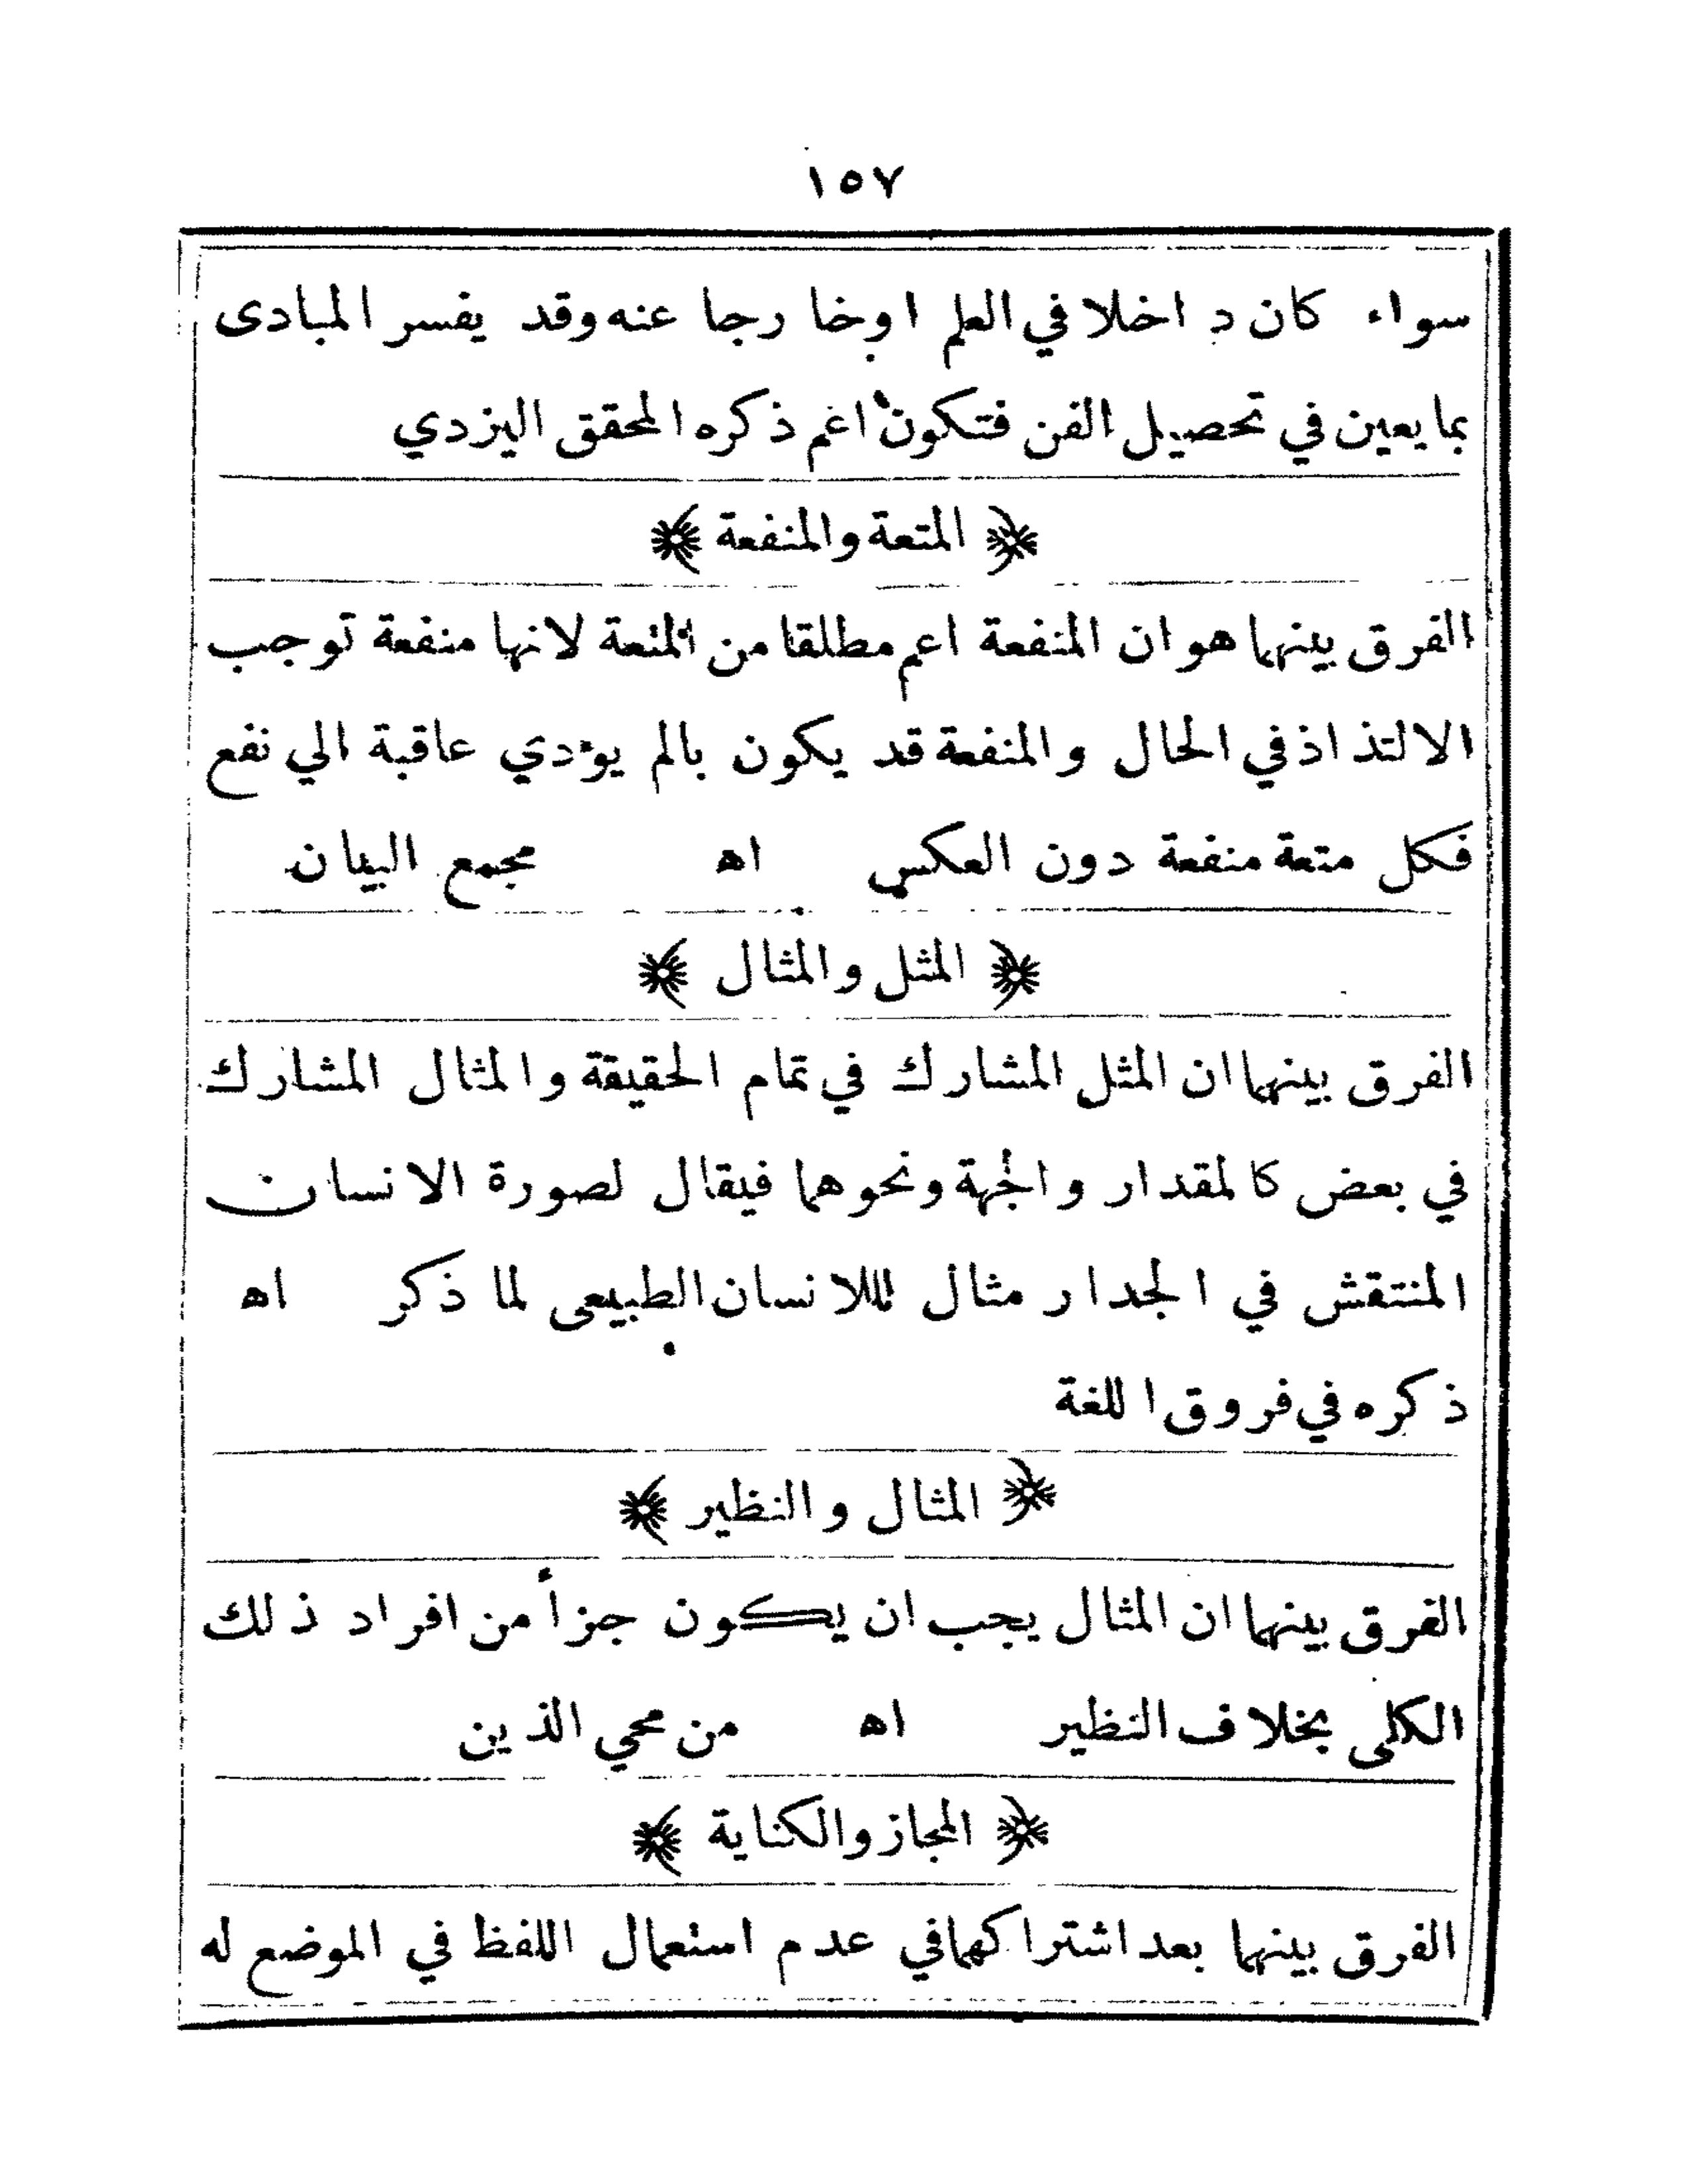 ١٥٧
سواء كان داخلا في العلم اوخارجا عنه وقد يفسر المبادى
بما يعين في تحصيل الفن فتكون اعم ذكره المحقق اليزدي
﴿ المتعة والمنفعة ﴾
الفرق بينهما هو ان المنفعة اعم مطلقا من المتعة لانها منفعة توجب
الالتذاذ في الحال والمنفعة قد يكون بالم يؤدي عاقبة الي نفع
فكل متعة منفعة دون العكس اه مجمع البيان
﴿ المثل والمثال ﴾
الفرق بينهما ان المثل المشارك في تمام الحقيقة والمثال المشارك
في بعض كالمقدار والجهة ونحوهما فيقال لصورة الانسان
المنتقش في الجدار مثال للانسان الطبيعى لما ذكر اه
ذكره في فروق اللغة
﴿ المثال والنظير ﴾
الفرق بينهما ان المثال يجب ان يكون جزأ من افراد ذلك
الكلى بخلاف النظير اه من محي الدين
﴿ المجاز والكناية ﴾
الفرق بينهما بعد اشتراكهما في عدم استعمال اللفظ في الموضع له